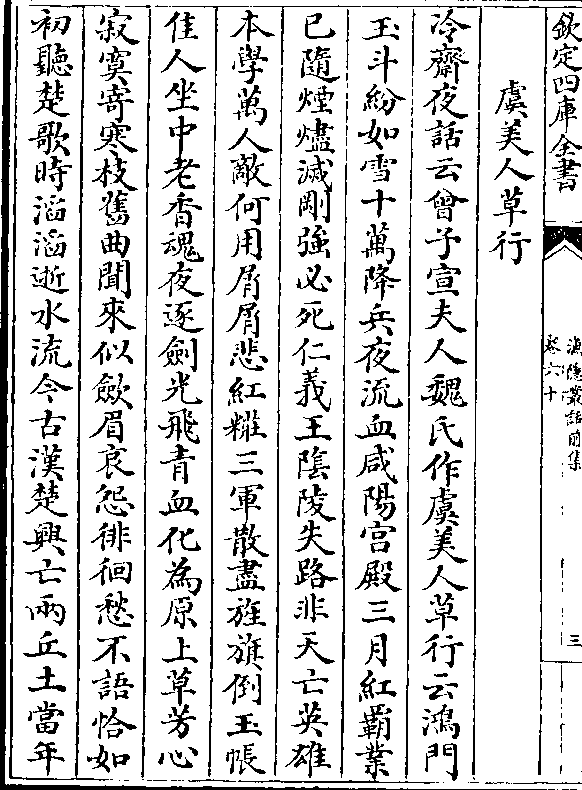 欽定四庫全書
漁隱叢話前集
卷六十
三
虞美人草行
冷齋夜話云曾子宣夫人魏氏作虞美人草行云鴻門
玉斗紛如雪十萬降兵夜流血咸陽宮殿三月紅霸業
已隨煙燼滅剛強必死仁義王陰陵失路非天亡英雄
本學萬人敵何用屑屑悲紅糚三軍散盡旌旗倒玉帳
佳人坐中老香魂夜逐劍光飛青血化為原上草芳心
寂寞寄寒枝舊曲聞來似斂眉哀怨徘徊愁不語恰如
初聽楚歌時滔滔逝水流今古漢楚興亡兩丘土當年